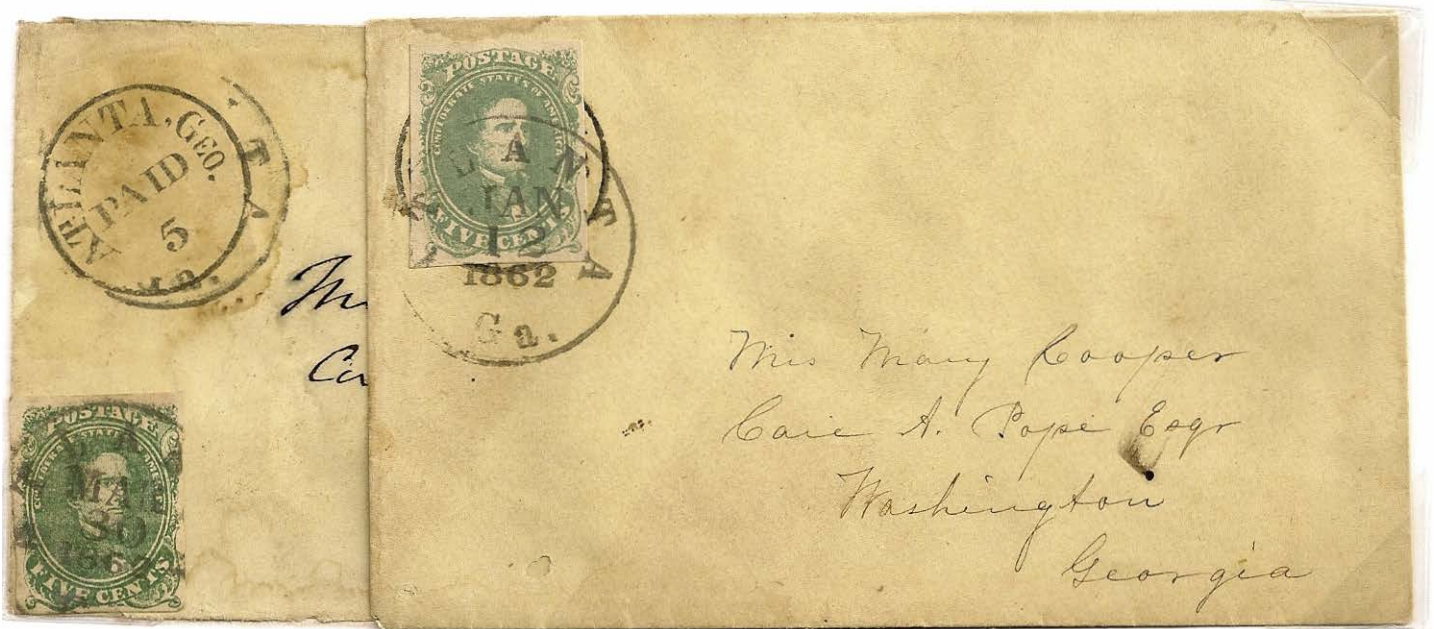 ATLANTA, GEO.
PAID
5
TA
Ga.
POSTAGE
CONFEDERATE STATES OF AMERICA
MAR
30
186
FIVE CENTS
Ca
POSTAGE
CONFEDERATE STATES OF AMERICA
LANTA
JAN
12
FIVE CENTS
1862
Ga.
Miss Mary Cooper
Care A. Pope Esqr
Washington
Georgia